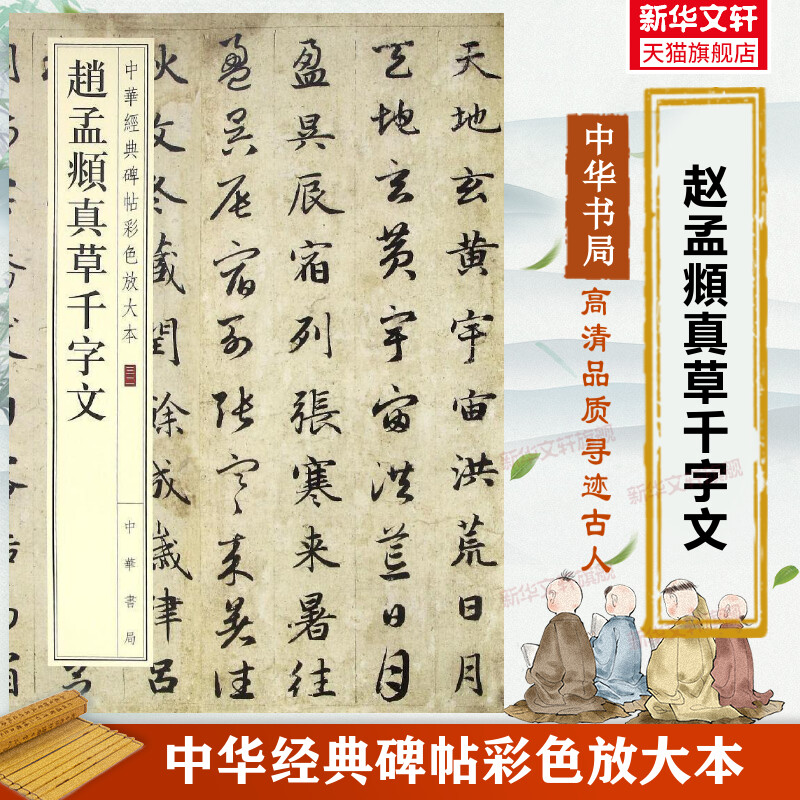 新华文轩
天猫旗舰店
中華經典碑帖彩色放大本
三二
趙孟頫真草千字文
中華書局
天地玄黄宇宙洪荒日月
天地玄黄宇宙洪荒日月
盈昃辰宿列張寒来暑往
盈昃辰宿列張寒来暑往
秋收冬藏閏餘成歲律吕
赵孟頫真草千字文
中华书局
高清品质寻迹古人
新华文轩旗舰
新华文轩旗舰
新华文轩旗舰
中华经典碑帖彩色放大本